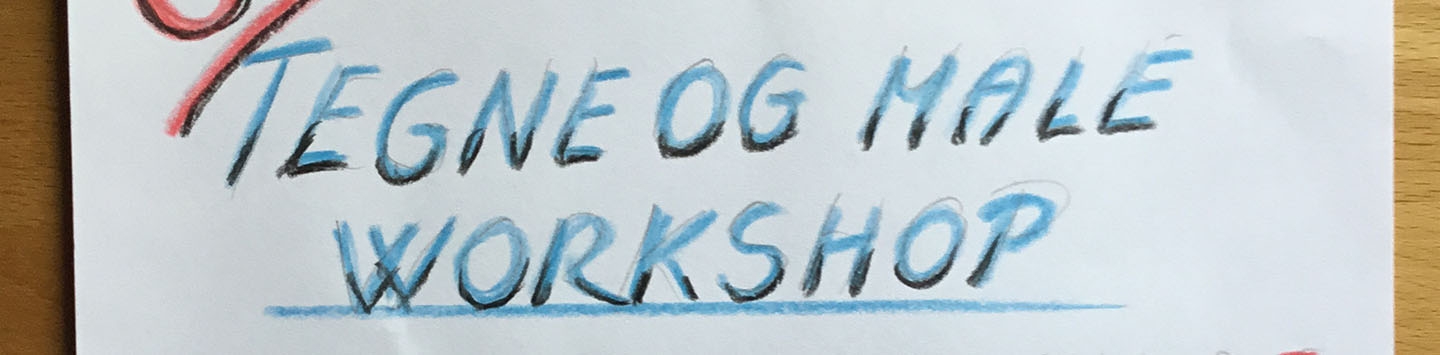 TEGNE OG MALE
WORKSHOP